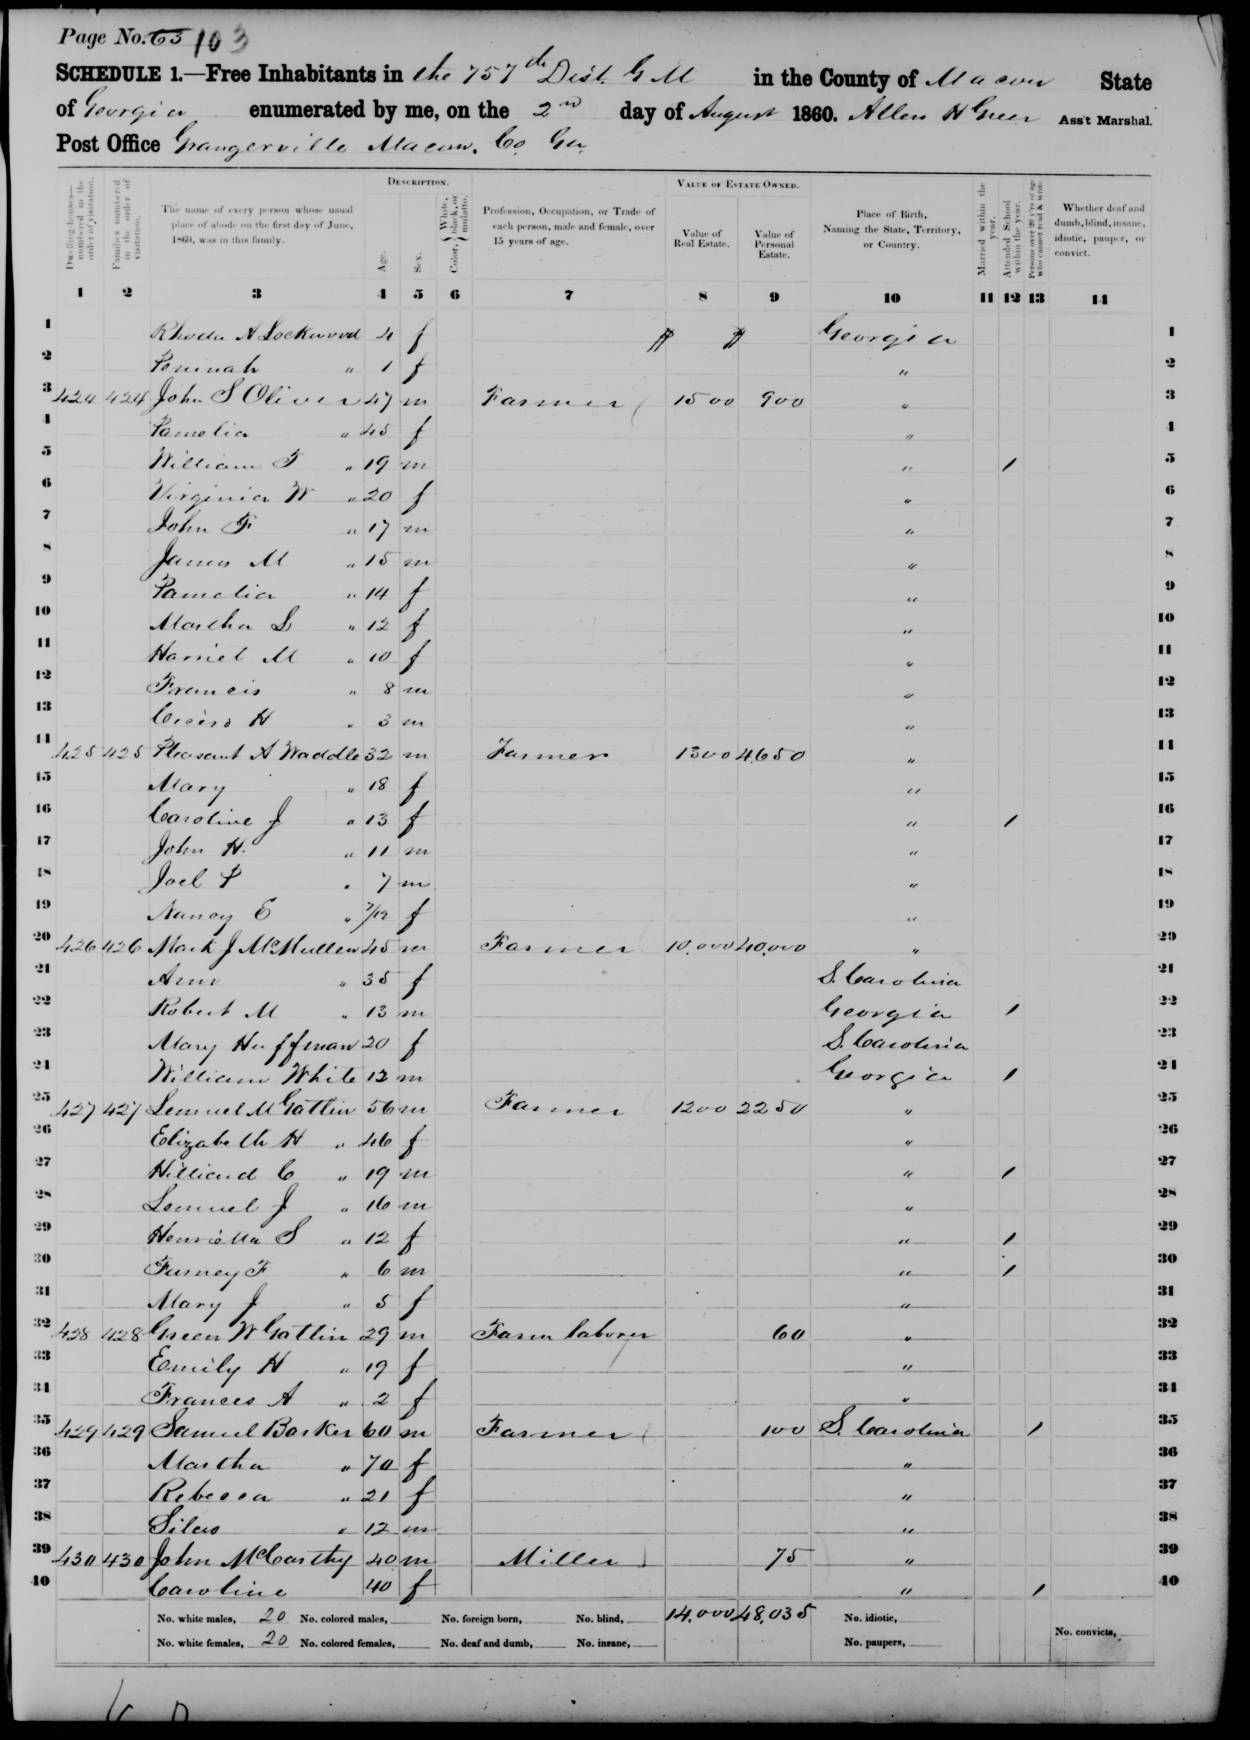 Page No. 63 103
SCHEDULE 1.—Free Inhabitants in the 757th Dist. G M in the County of Macon State
of Georgia enumerated by me, on the 2nd day of August 1860. Allen H Greer Ass't Marshal.
Post Office Grangerville Macon. Co Ga.
Dwelling-houses—numbered in the order of visitation.
Families numbered in the order of visitation.
The name of every person whose usual place of abode on the first day of June, 1860, was in this family.
DESCRIPTION.
Age.
Sex.
Color, White, black, or mulatto.
Profession, Occupation, or Trade of each person, male and female, over 15 years of age.
VALUE OF ESTATE OWNED.
Value of Real Estate.
Value of Personal Estate.
Place of Birth, Naming the State, Territory, or Country.
Married within the year.
Attended School within the year.
Persons over 20 y'rs of age who cannot read & write.
Whether deaf and dumb, blind, insane, idiotic, pauper, or convict.
1 2 3 4 5 6 7 8 9 10 11 12 13 14
1 Rhoda A Lockwood 4 f $ $ Georgia 1
2 Peninah " 1 f " 2
3 424 424 John S Oliver 47 m Farmer 1500 900 " 3
4 Pamelia " 45 f " 4
5 William T " 19 m " / 5
6 Virginia W " 20 f " 6
7 John F " 17 m " 7
8 James M " 15 m " 8
9 Pamelia " 14 f " 9
10 Martha L " 12 f " 10
11 Harriet M " 10 f " 11
12 Francis " 8 m " 12
13 Cicero H " 3 m " 13
14 425 425 Pleasant A Waddle 32 m Farmer 1300 4650 " 14
15 Mary " 18 f " 15
16 Caroline J " 13 f " / 16
17 John H. " 11 m " 17
18 Joel P " 7 m " 18
19 Nancy E " 7/12 f " 19
20 426 426 Mark J McMullen 45 m Farmer 10,000 40,000 " 20
21 Ann " 35 f S. Carolina 21
22 Robert M " 13 m Georgia / 22
23 Mary Huffman 20 f S. Carolina 23
24 William White 12 m Georgia / 24
25 427 427 Lemuel M Gattin 56 m Farmer 1200 2250 " 25
26 Elizabeth H " 46 f " 26
27 Hilliard C " 19 m " / 27
28 Lemuel J " 16 m " 28
29 Henrietta S " 12 f " / 29
30 Furney F " 6 m " / 30
31 Mary J " 5 f " 31
32 428 428 Green W Gattin 29 m Farm laborer 60 " 32
33 Emily H " 19 f " 33
34 Frances A " 2 f " 34
35 429 429 Samuel Barker 60 m Farmer 100 S. Carolina / 35
36 Martha " 70 f " 36
37 Rebecca " 21 f " 37
38 Silas " 12 m " 38
39 430 430 John McCarthy 40 m Miller 75 " 39
40 Caroline 40 f " / 40
No. white males, 20 No. colored males, No. foreign born, No. blind, 14,000 48,035 No. idiotic,
No. white females, 20 No. colored females, No. deaf and dumb, No. insane, No. paupers, No. convicts,